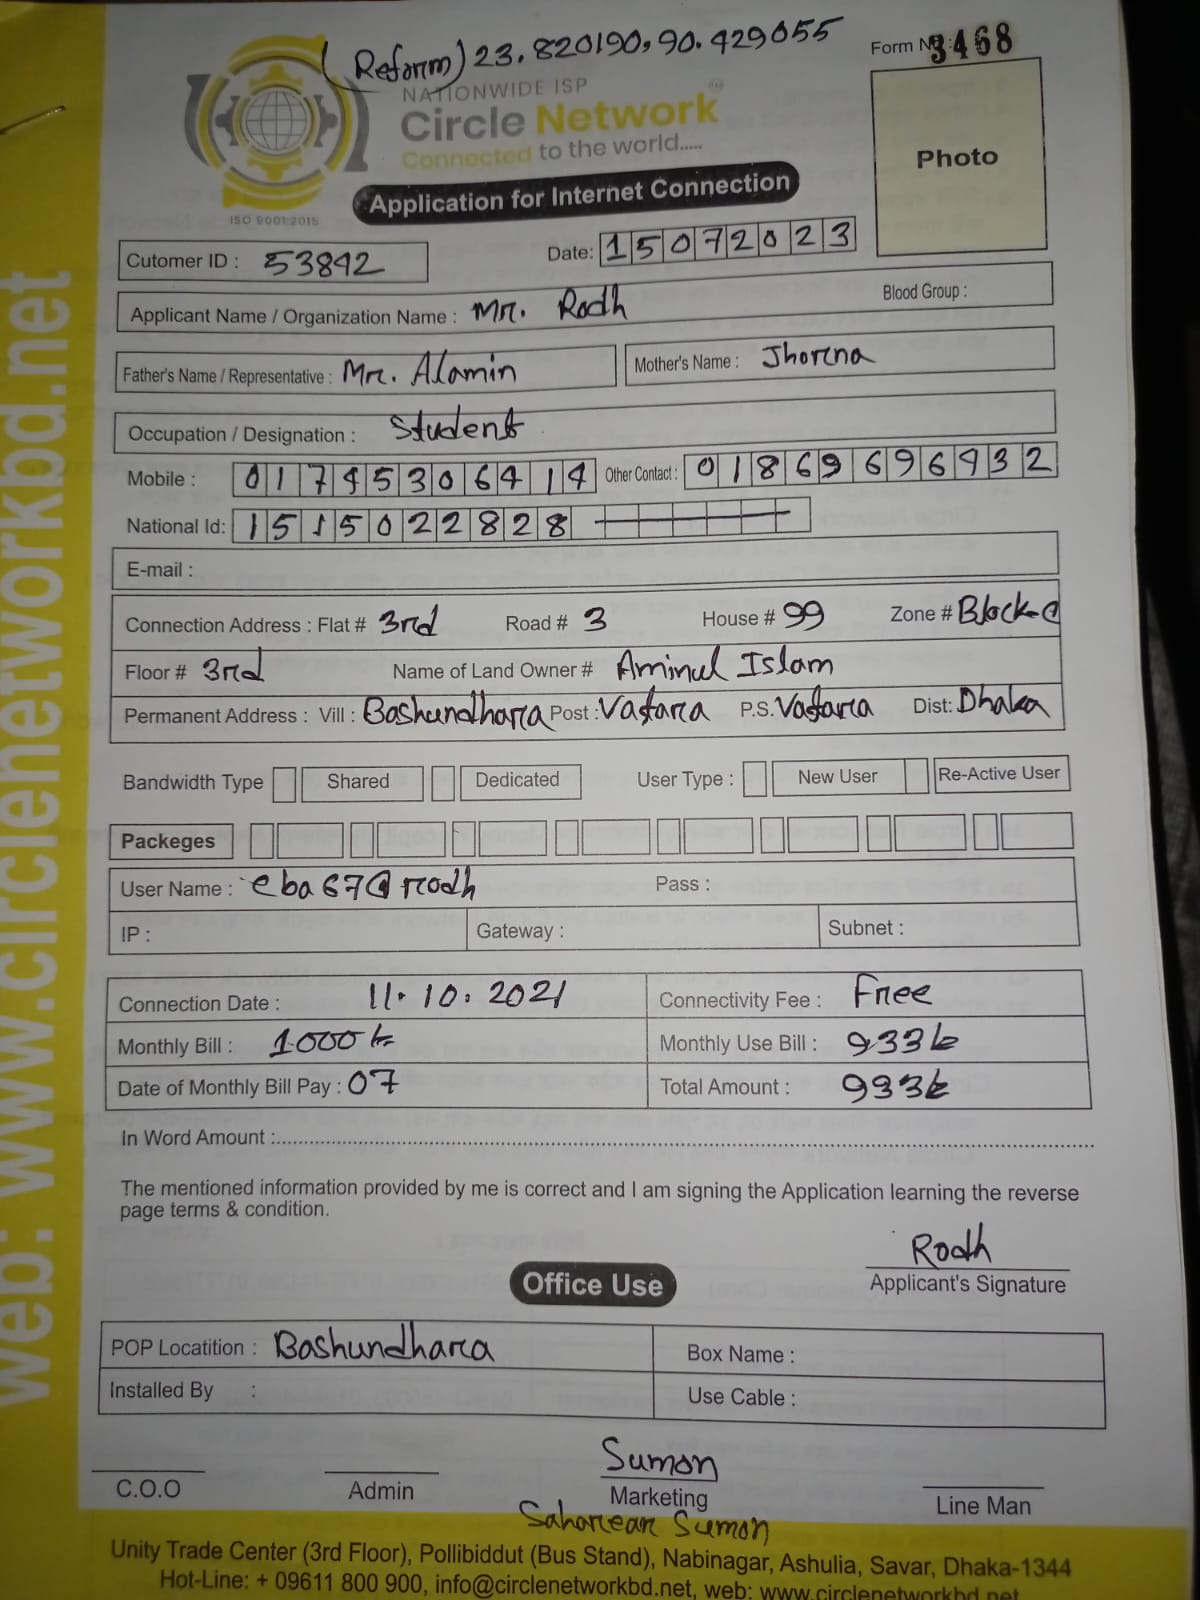 (Reform) 23.820190, 90.429055
Form No: 3468
NATIONWIDE ISP
Circle Network
Connected to the world.....
Photo
ISO 9001:2015
Application for Internet Connection
Cutomer ID : 53892
Date: 15072023
Applicant Name / Organization Name : Mr. Rodh
Blood Group :
Father's Name / Representative : Mr. Alamin
Mother's Name : Jhorna
Occupation / Designation : Student
Mobile : 01745306414 Other Contact : 01869696932
National Id: 1515022828
E-mail :
Connection Address : Flat # 3rd Road # 3 House # 99 Zone # Block-C
Floor # 3rd Name of Land Owner # Aminul Islam
Permanent Address : Vill : Bashundhara Post : Vatara P.S. Vatara Dist: Dhaka
Bandwidth Type Shared Dedicated User Type : New User Re-Active User
Packeges
User Name : eba67@rodh Pass :
IP : Gateway : Subnet :
Connection Date : 11.10.2021 Connectivity Fee : Free
Monthly Bill : 1000 tk Monthly Use Bill : 933 tk
Date of Monthly Bill Pay : 07 Total Amount : 933 tk
In Word Amount :
The mentioned information provided by me is correct and I am signing the Application learning the reverse
page terms & condition.
Rodh
Applicant's Signature
Office Use
POP Locatition : Bashundhara Box Name :
Installed By : Use Cable :
Sumon
C.O.O Admin Marketing Line Man
Saharear Sumon
Unity Trade Center (3rd Floor), Pollibiddut (Bus Stand), Nabinagar, Ashulia, Savar, Dhaka-1344
Hot-Line: + 09611 800 900, info@circlenetworkbd.net, web: www.circlenetworkbd.net
web: www.circlenetworkbd.net